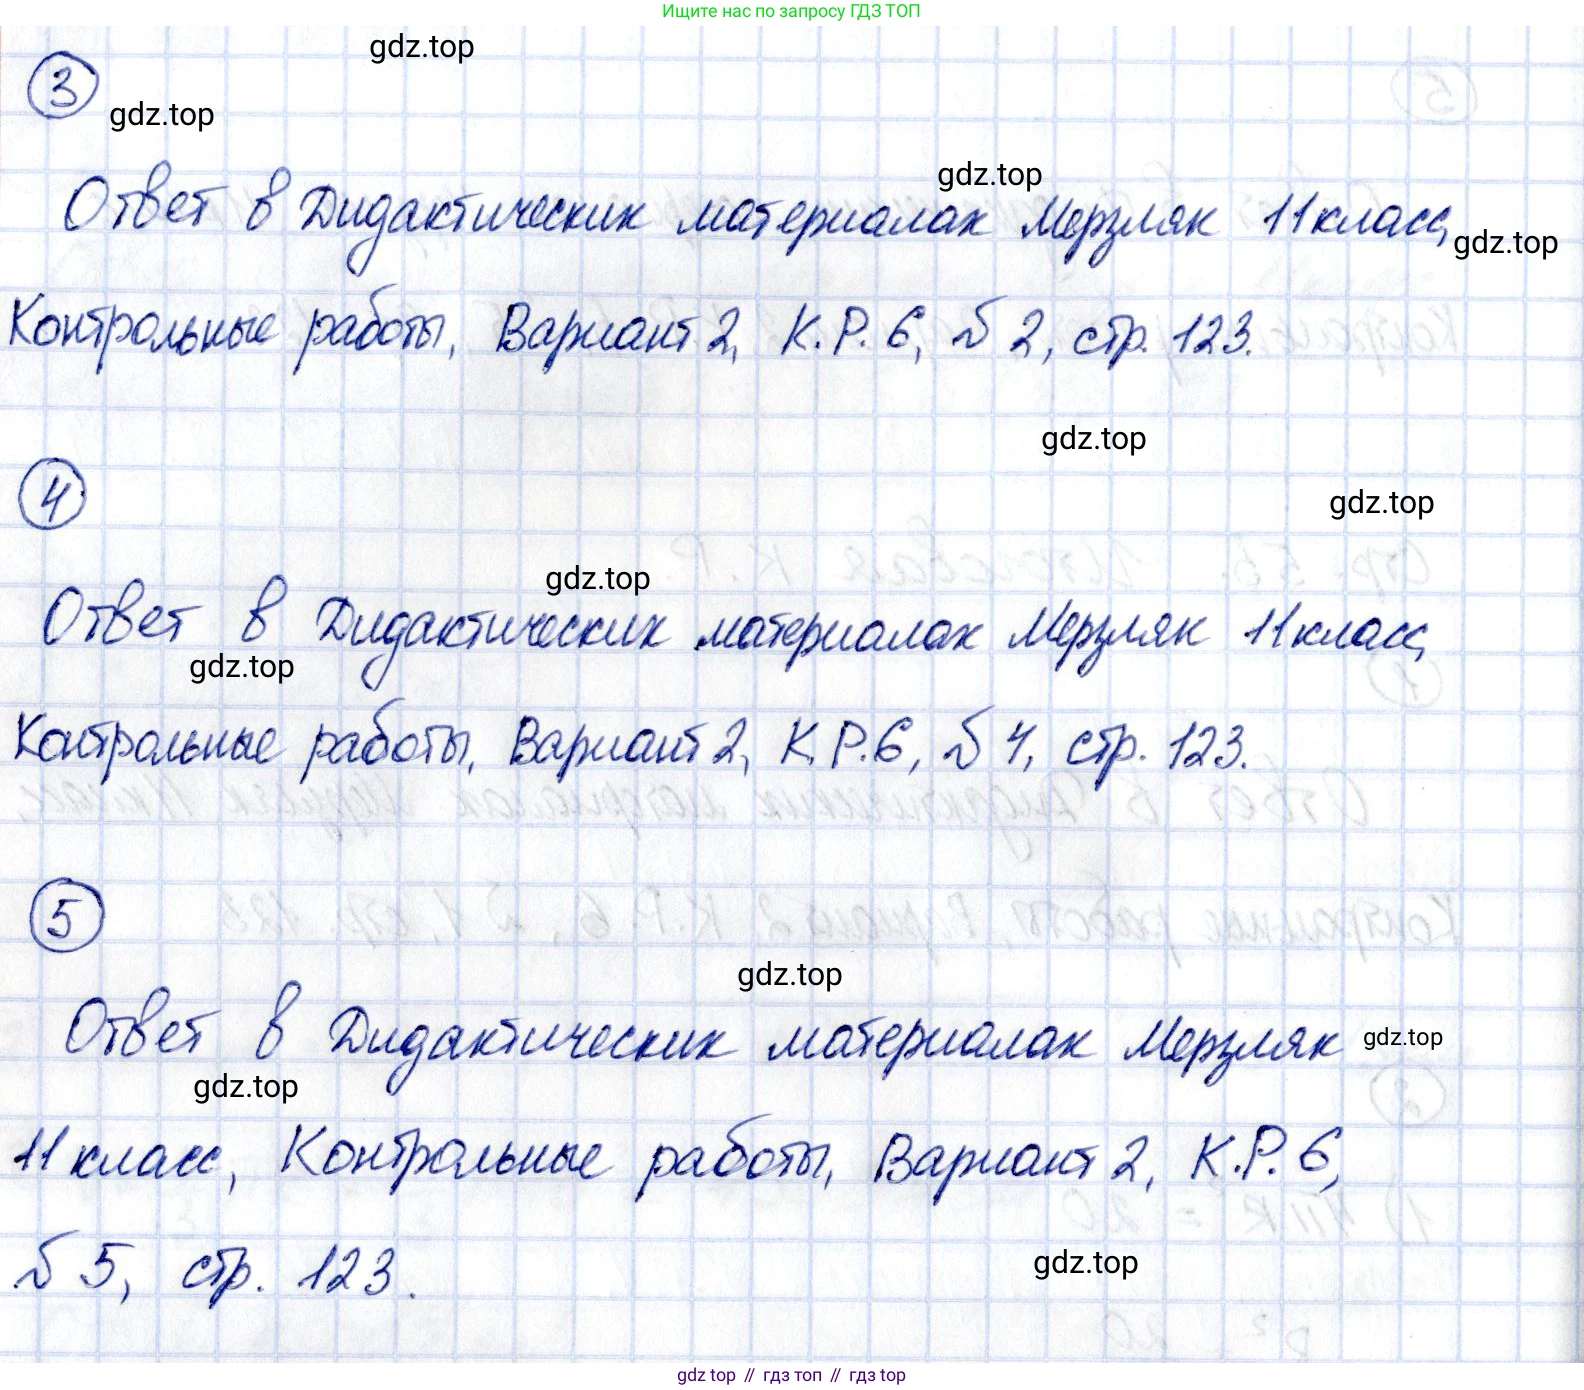 Ищите нас по запросу ГДЗ ТОП
gdz.top
3
gdz.top
gdz.top
Ответ в Дидактических материалах Мерзляк 11 класс,
gdz.top
Контрольные работы, Вариант 2, К.Р. 6, № 2, стр. 123.
gdz.top
4
gdz.top
gdz.top
Ответ в Дидактических материалах Мерзляк 11 класс,
gdz.top
Контрольные работы, Вариант 2, К.Р. 6, № 4, стр. 123.
5
gdz.top
Ответ в Дидактических материалах Мерзляк
gdz.top
gdz.top
11 класс, Контрольные работы, Вариант 2, К.Р. 6,
№ 5, стр. 123.
gdz.top
gdz top // гдз топ // гдз top